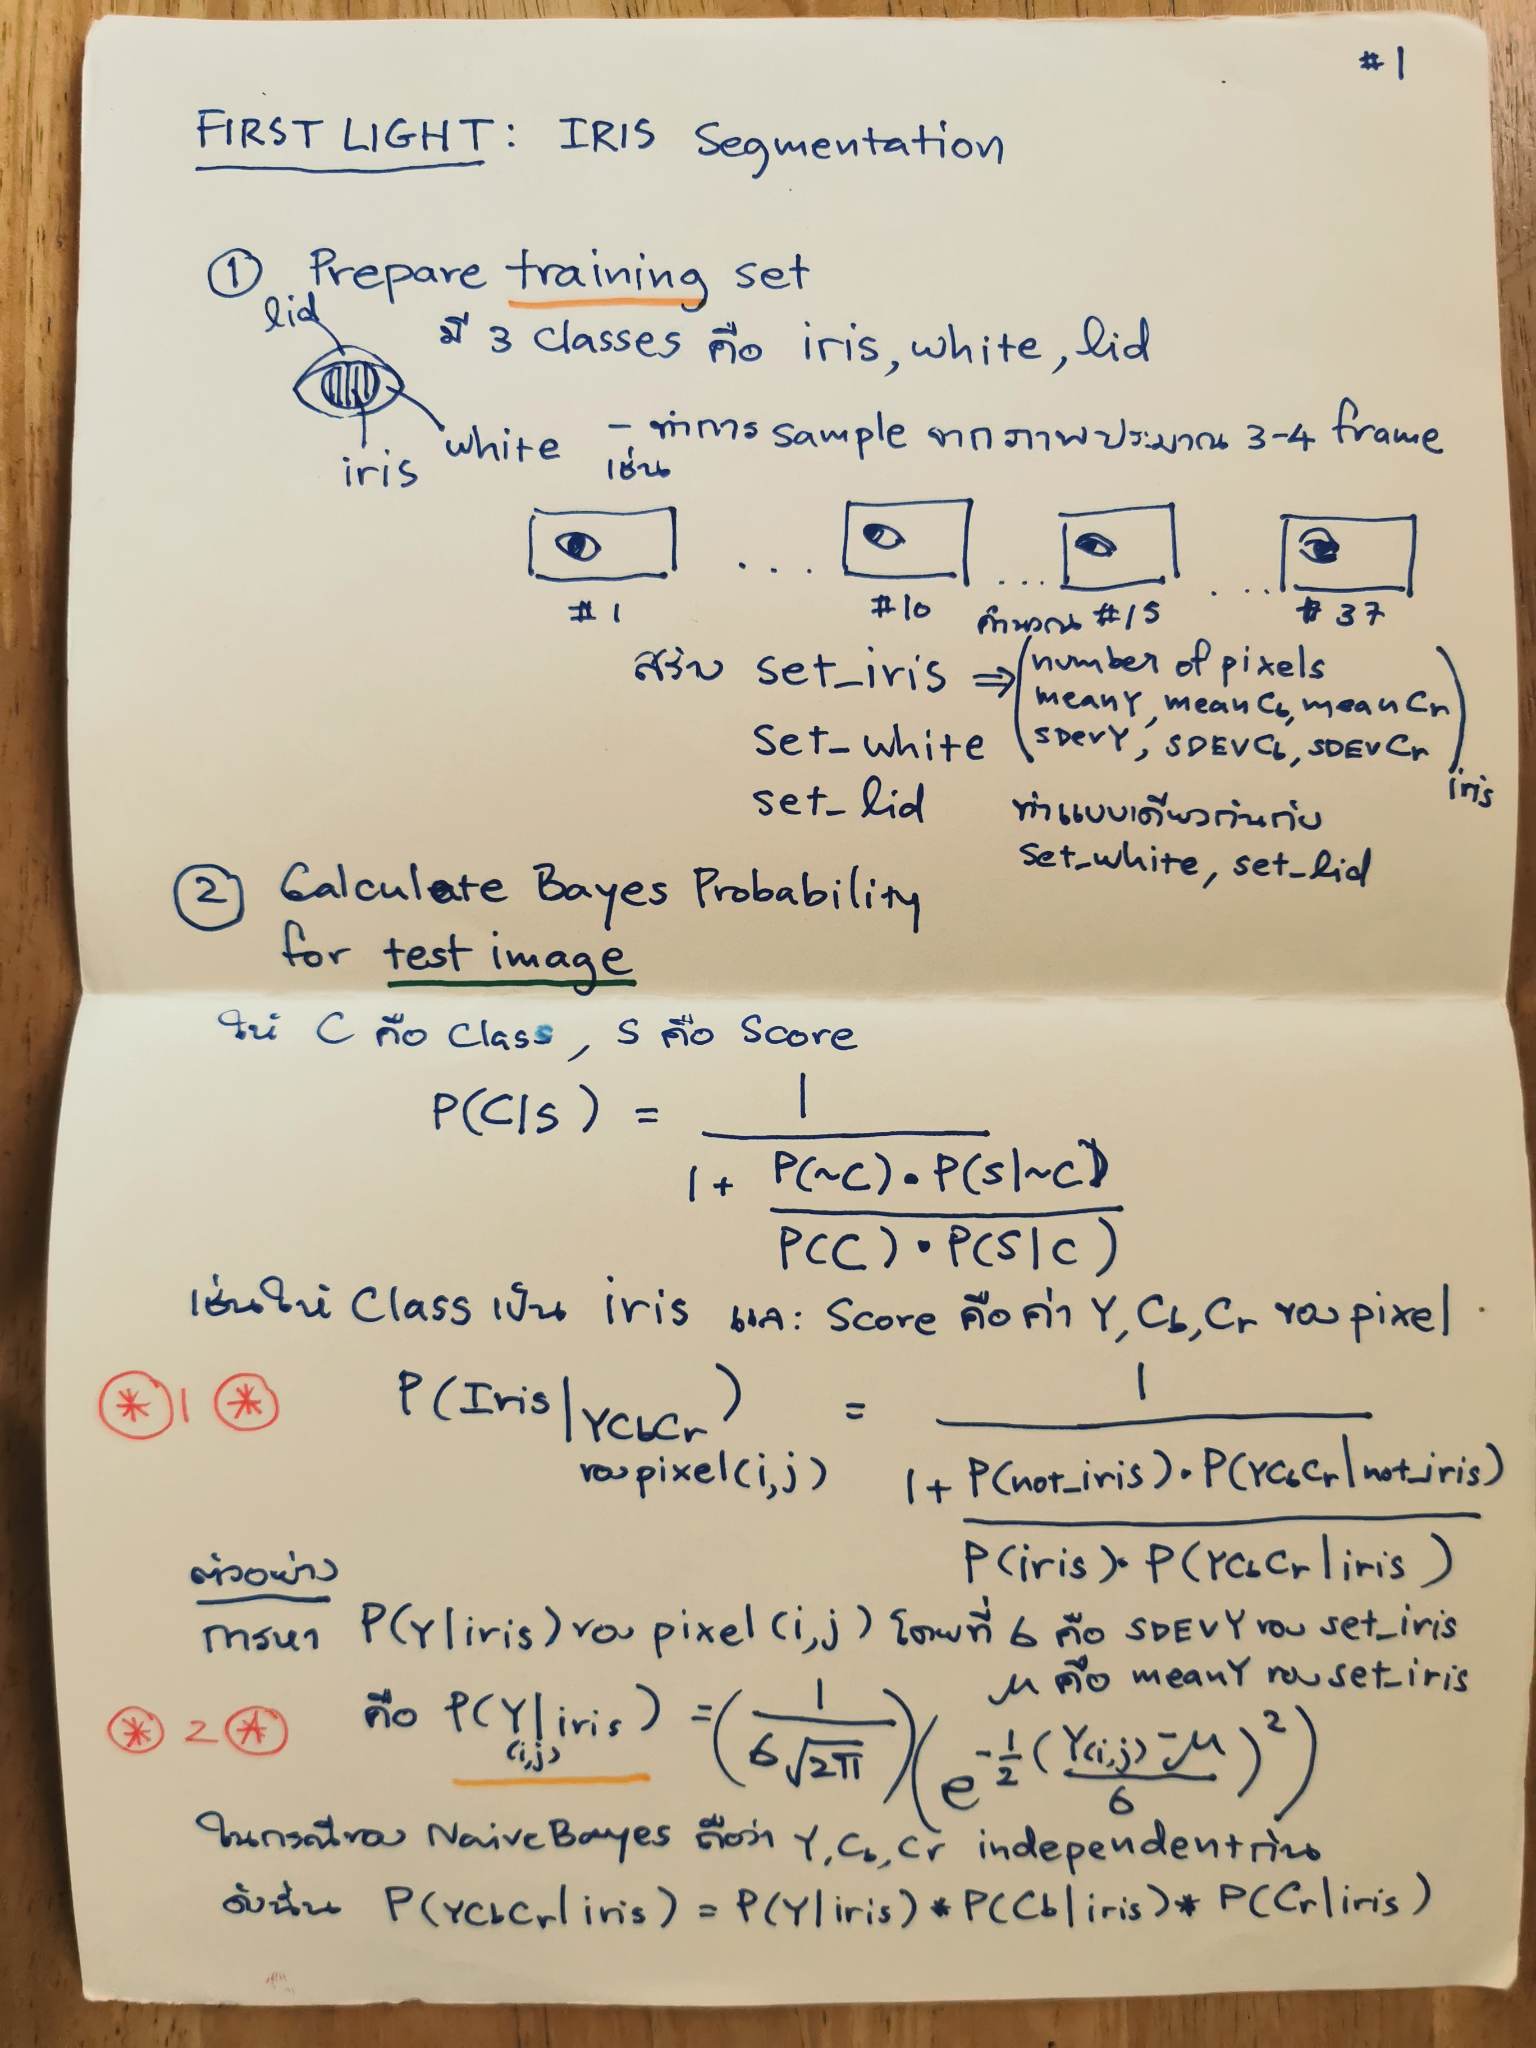 #1
FIRST LIGHT: IRIS Segmentation
① Prepare training set
lid
มี 3 classes คือ iris, white, lid
white
iris
- ทำการ sample จากภาพประมาณ 3-4 frame
เช่น
... ... ...
#1 #10 #15 #37
คำนวณ
สร้าง set_iris ⇒ (number of pixels
meanY, meanCb, meanCr
SDevY, SDEVCb, SDEVCr) iris
set_white
set_lid
ทำแบบเดียวกันกับ
set_white, set_lid
② Calculate Bayes Probability
for test image
ให้ C คือ Class, S คือ Score
P(C|S) = 1
1 + P(~C) • P(S|~C)
P(C) • P(S|C)
เช่นให้ Class เป็น iris และ Score คือค่า Y, Cb, Cr ของ pixel
⊛ 1 ⊛ P(Iris|YCbCr) = 1
ของ pixel(i,j)
1 + P(not_iris) • P(YCbCr|not_iris)
P(iris) • P(YCbCr|iris)
ตัวอย่าง
การหา P(Y|iris) ของ pixel(i,j) โดยที่ 6 คือ SDEVY ของ set_iris
μ คือ meanY ของ set_iris
⊛ 2 ⊛ คือ P(Y(i,j)|iris) = (1/6√2π)(e^-1/2(Y(i,j)-μ/6)^2)
ในกรณีของ NaiveBayes ถือว่า Y, Cb, Cr independent กัน
ดังนั้น P(YCbCr|iris) = P(Y|iris) * P(Cb|iris) * P(Cr|iris)